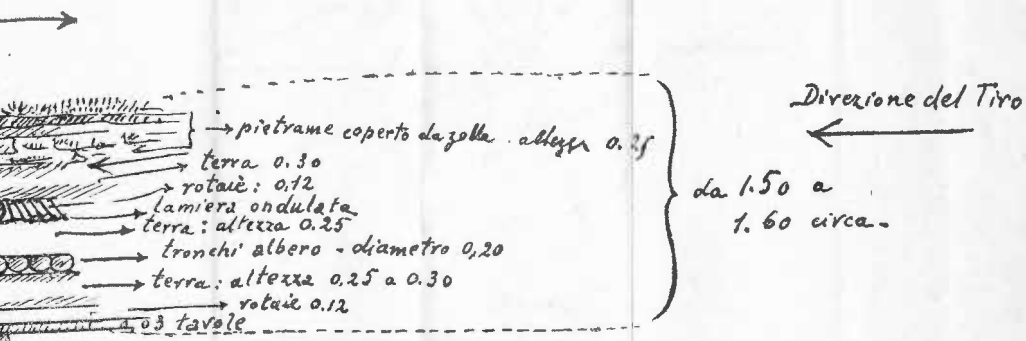 Direzione del Tiro
pietrame coperto da zolla. altezza 0.25
terra 0.30
rotaiè: 0.12
lamiera ondulata
terra: altezza 0.25
tronchi albero - diametro 0,20
terra: altezza 0.25 a 0.30
rotaie 0.12
0.03 tavole
da 1.50 a
1.60 circa.